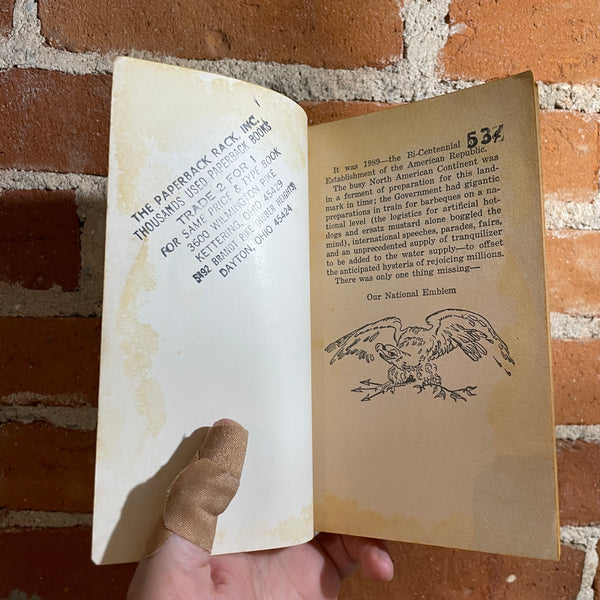 THE PAPERBACK RACK, INC.
THOUSANDS USED PAPERBACK BOOKS
TRADE 2 FOR 1
FOR SAME PRICE & TYPE BOOK
3600 WILMINGTON PIKE
KETTERING, OHIO 45429
5492 BRANDT PIKE (HUBER HEIGHTS)
DAYTON, OHIO 45424
534
It was 1989—the Bi-Centennial
Establishment of the American Republic.
The busy North American Continent was
in a ferment of preparation for this land-
mark in time; the Government had gigantic
preparations in train for barbeques on a na-
tional level (the logistics for artificial hot-
dogs and ersatz mustard alone boggled the
mind), international speeches, parades, fairs,
and an unprecedented supply of tranquilizer
to be added to the water supply—to offset
the anticipated hysteria of rejoicing millions.
There was only one thing missing—
Our National Emblem